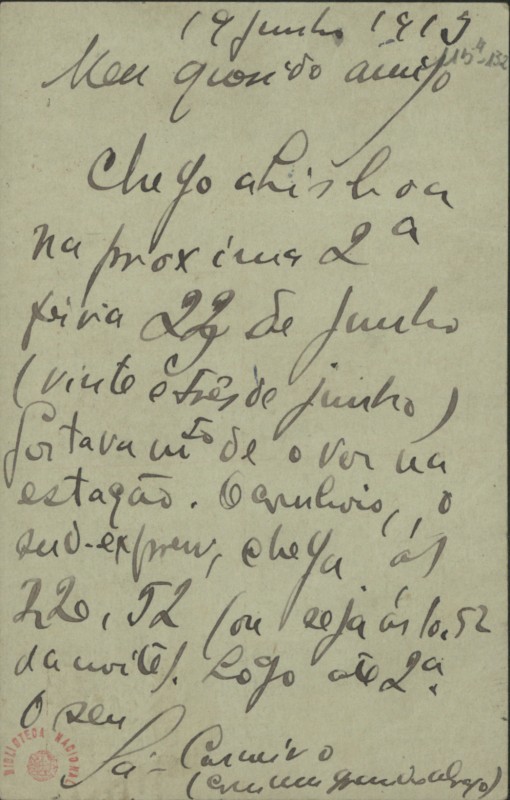 19 Junho 1913
115⁴-152
Meu querido amigo
Chego a Lisboa
na proxima 2ª
feira 23 de Junho
(vinte e três de junho)
Gostava mto de o ver na
estação. O comboio, o
sud-express, chega ás
22,52 (ou seja ás 10,52
da noite). Logo até 2ª.
O seu
Sá-Carneiro
(com um grande abraço)
BIBLIOTECA NACIONAL